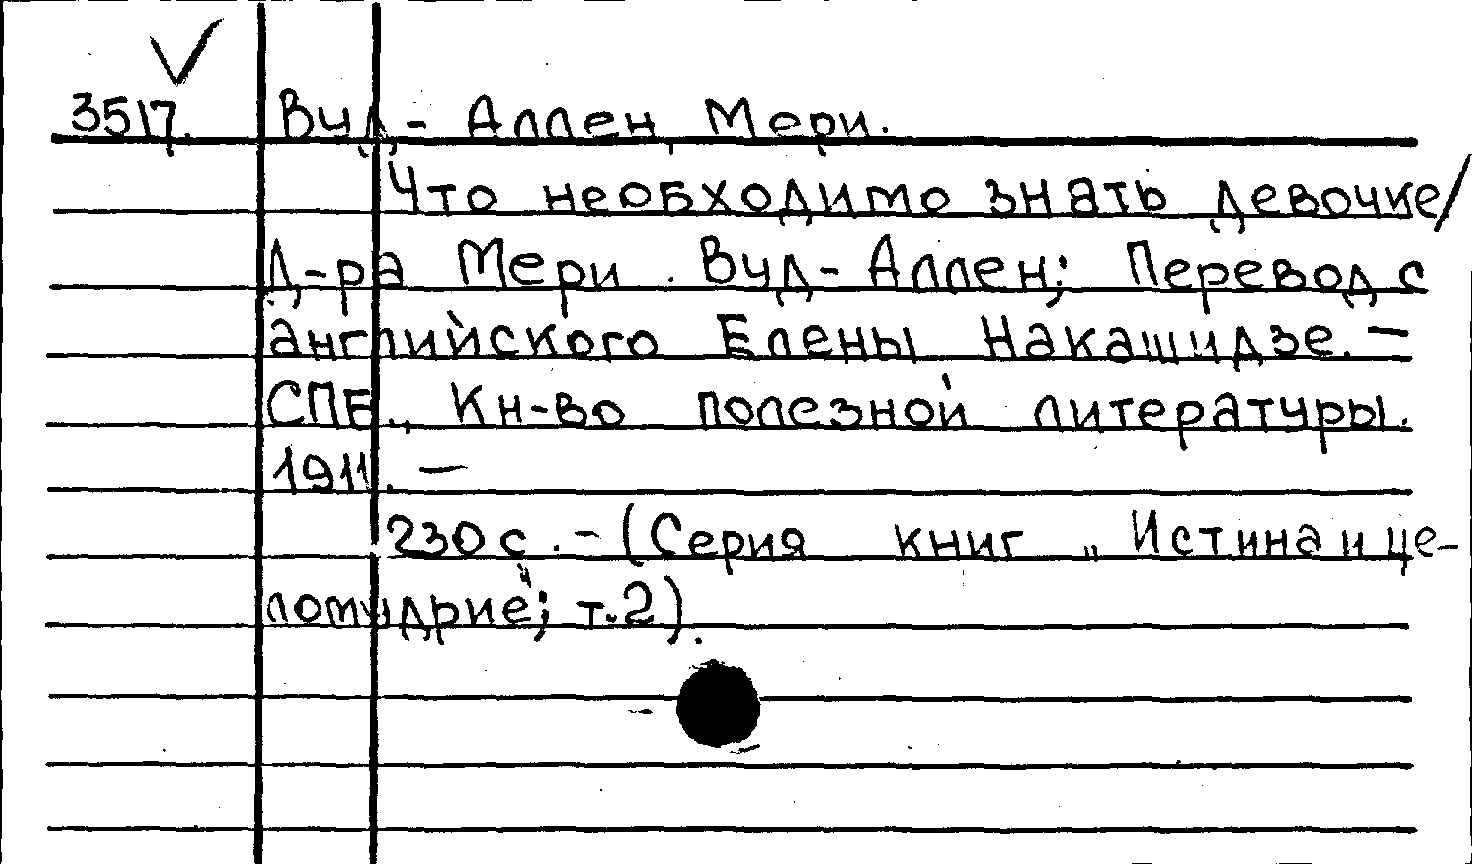 3517. Вуд-Аллен, Мери.
Что необходимо знать девочке/
Д-ра Мери Вуд-Аллен; Перевод с
английского Елены Накашидзе.—
СПБ., Кн-во полезной литературы.
1911.—
230 с.-(Серия книг „Истина и це-
ломудрие"; т.2).